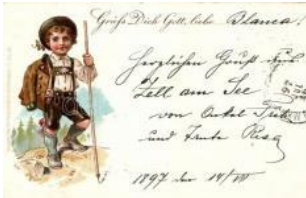 Grüß Dich Gott, liebe Blanca!
Herzlichen Gruß aus
Zell am See
von Onkel
und Tante Resa
1897 den 14/VII